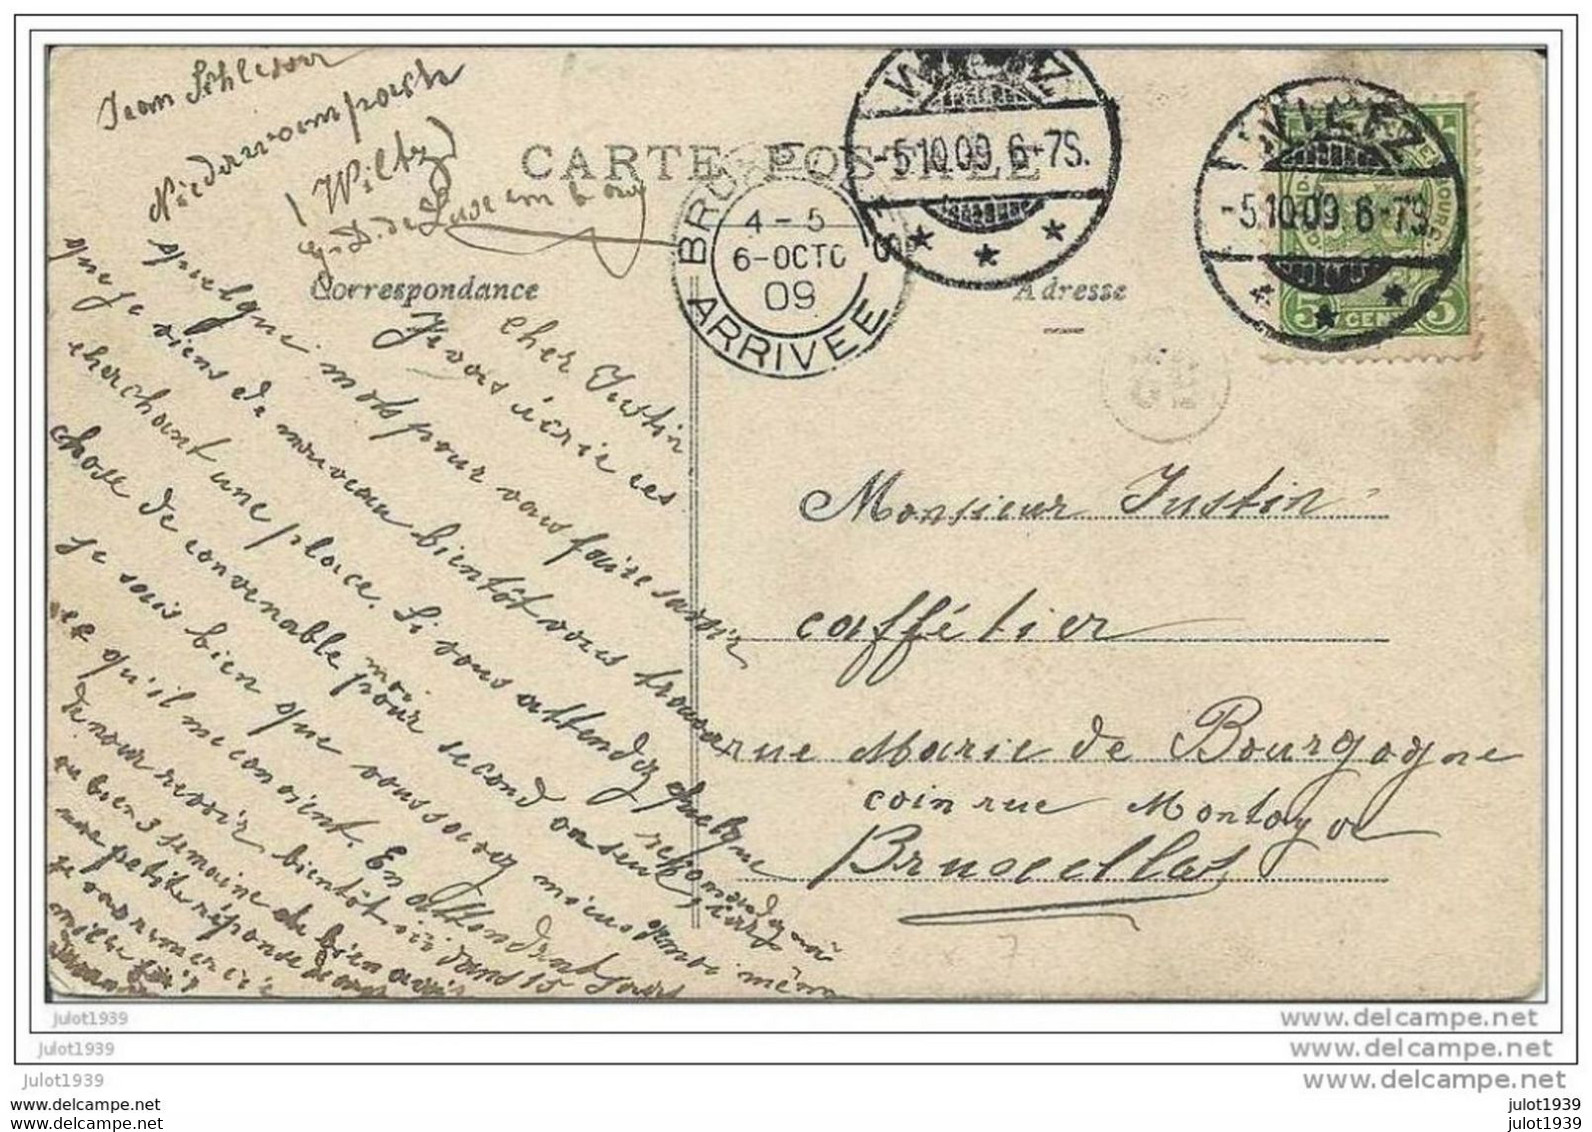 Jean Schlesser
Niederwampach
(Wiltz)
CARTE POSTALE
Correspondance
Adresse
WILTZ
-5.10.09.6-7S.
WILTZ
-5.10.09.6-7S.
4-5
6-OCTO
09
ARRIVEE
5 CENT 5
Cher Justin
Je vous écrie ces
quelque mots pour vous faire savoir
que je viens de nouveau bientôt vous trouver
cherchant une place. Si vous attendez quelque
chose de convenable pour moi recomandez moi
second ou seul
Je sais bien que vous savez mieux que moi même
ce qu'il me convient. En attendant
de nour revoir bientôt ici dans 15 jours
ou bien 3 semaine
une petite réponse
je vous remercie
mille fois
Monsieur Justin
caffétier
rue Marie de Bourgogne
coin rue Montoyer
Bruxelles
julot1939
julot1939
julot1939
julot1939
julot1939
www.delcampe.net
www.delcampe.net
www.delcampe.net
julot1939
julot1939